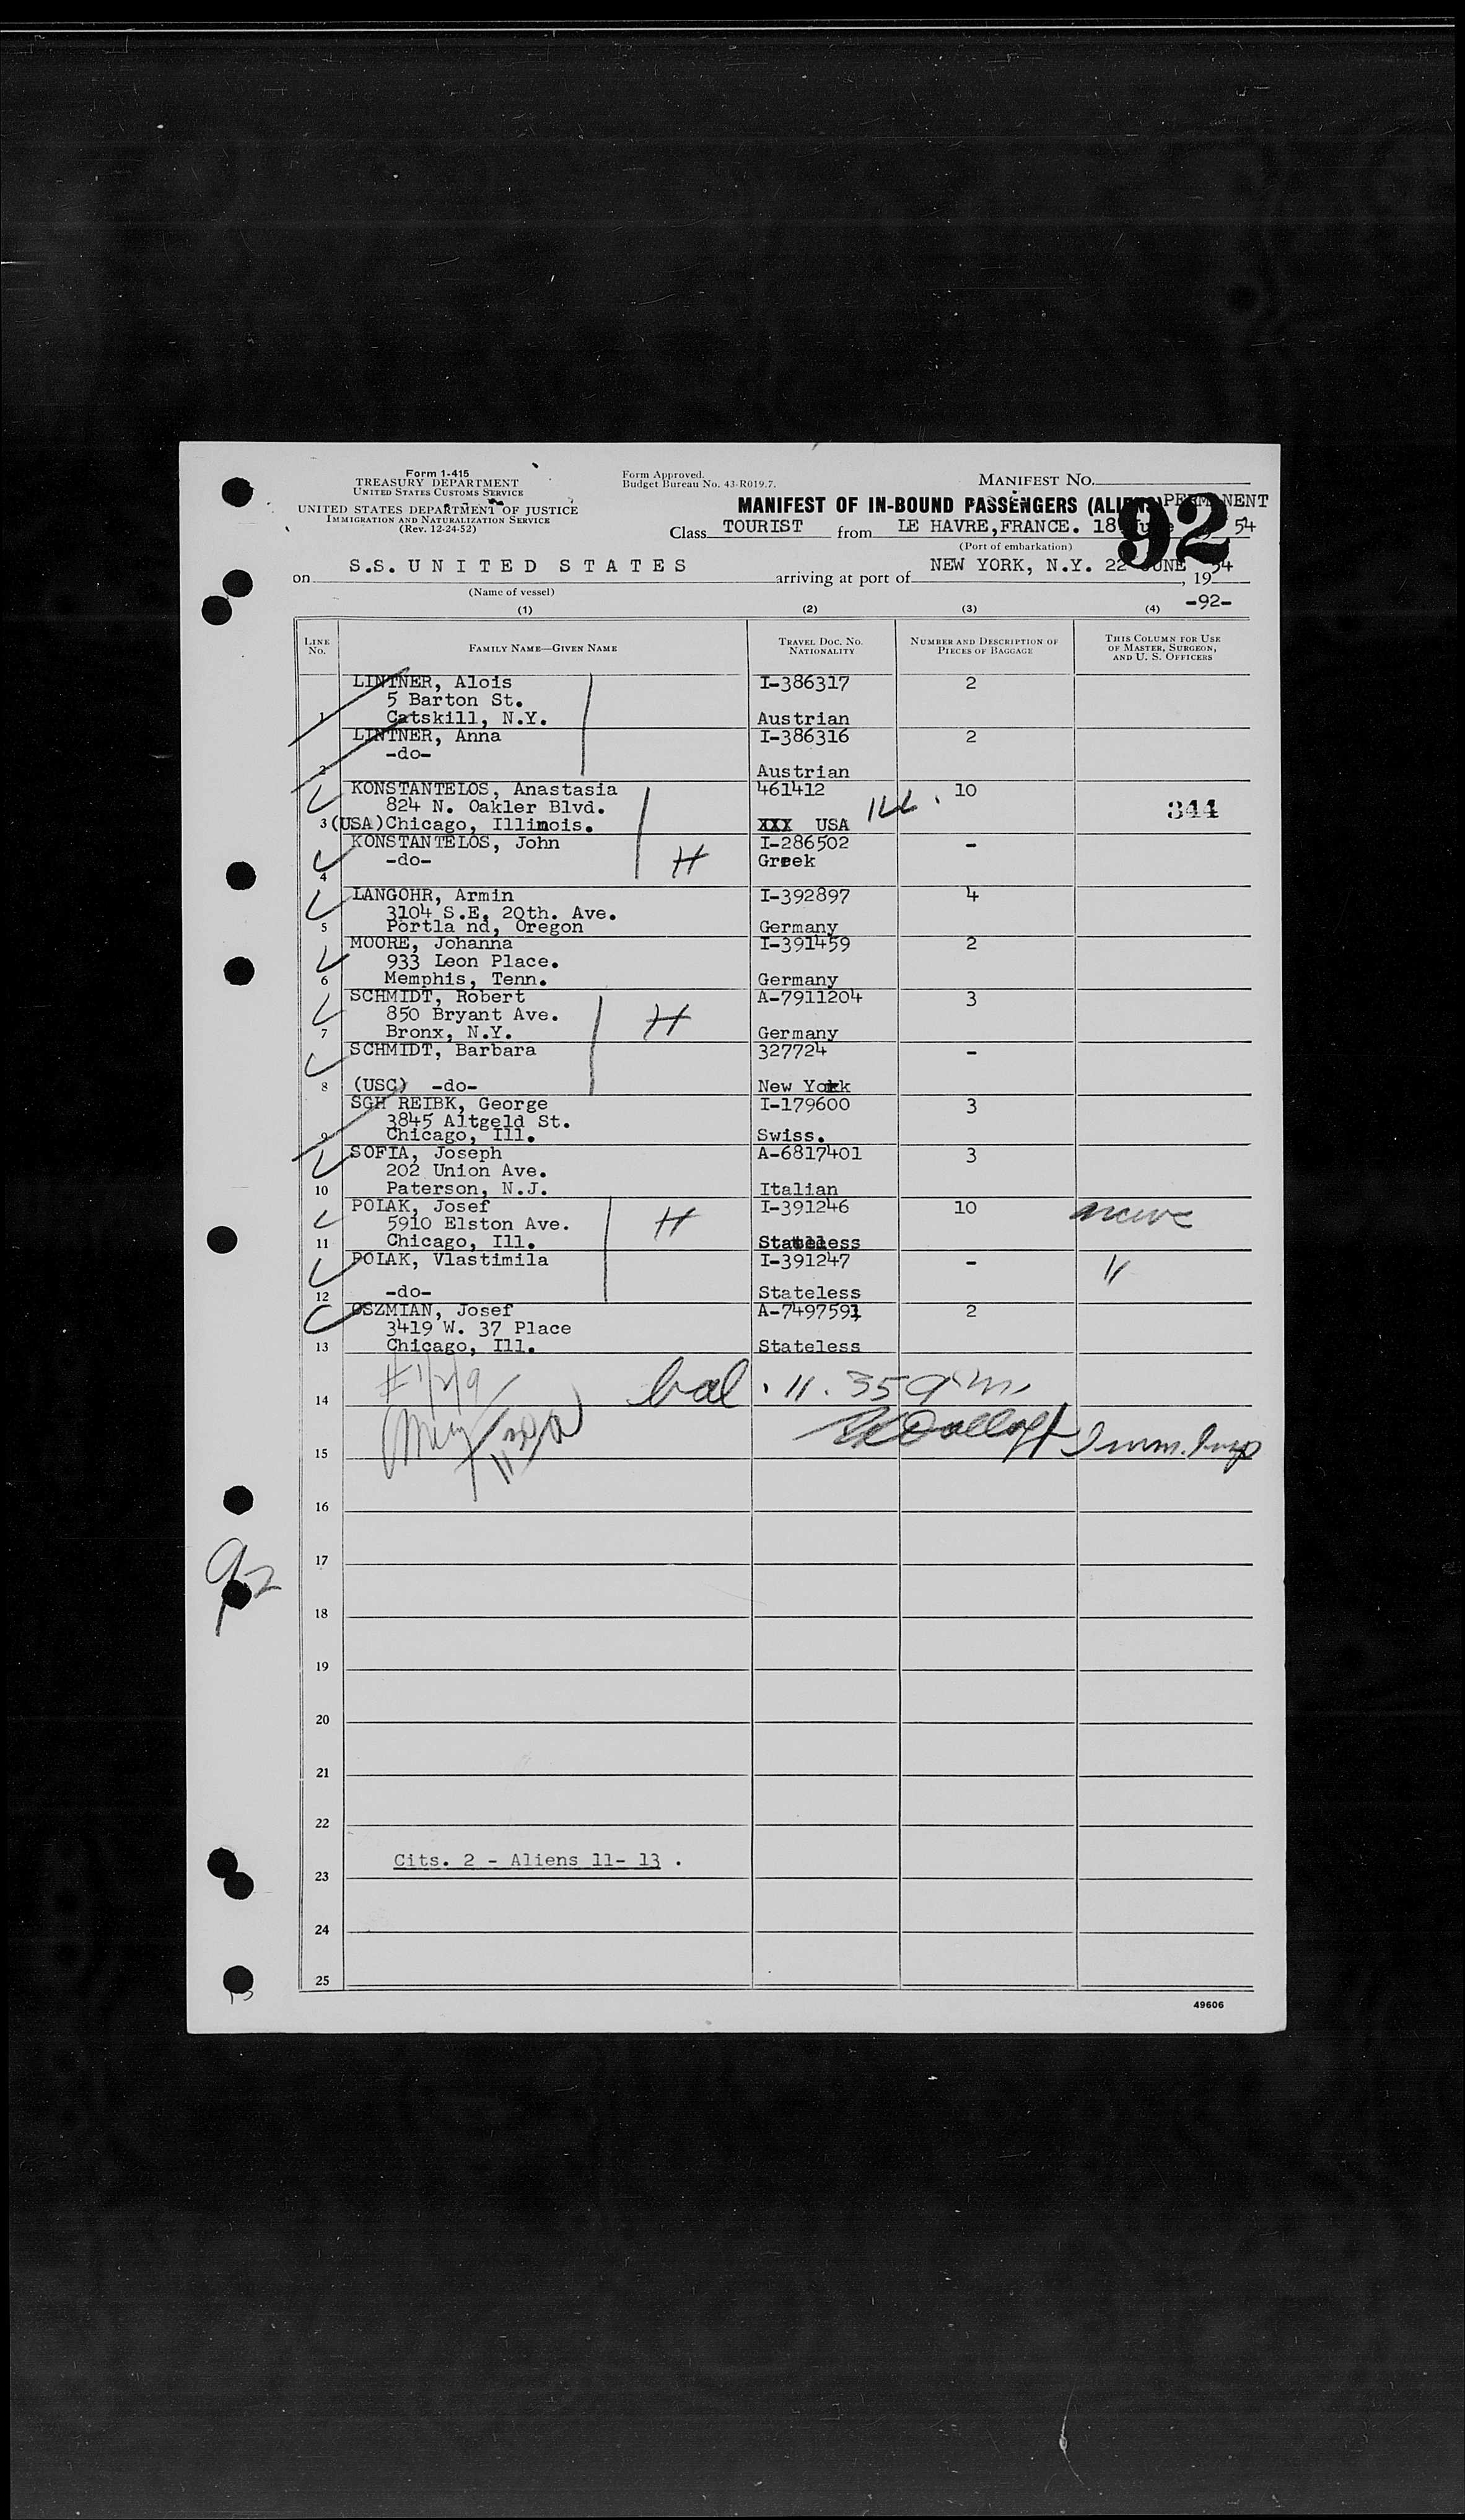 Form 1-415
TREASURY DEPARTMENT
UNITED STATES CUSTOMS SERVICE
UNITED STATES DEPARTMENT OF JUSTICE
IMMIGRATION AND NATURALIZATION SERVICE
(Rev. 12-24-52)
Form Approved.
Budget Bureau No. 43-R019.7.
MANIFEST NO.
MANIFEST OF IN-BOUND PASSENGERS (ALIENS) PERMANENT
92
Class TOURIST from LE HAVRE, FRANCE. 18 June 54
(Port of embarkation)
on S.S. UNITED STATES arriving at port of NEW YORK, N.Y. 22 JUNE, 1954
(Name of vessel)
-92-
(1) (2) (3) (4)
LINE No. FAMILY NAME—GIVEN NAME TRAVEL DOC. NO. NATIONALITY NUMBER AND DESCRIPTION OF PIECES OF BAGGAGE THIS COLUMN FOR USE OF MASTER, SURGEON, AND U. S. OFFICERS
LINTNER, Alois I-386317 2
5 Barton St.
1 Catskill, N.Y. Austrian
LINTNER, Anna I-386316 2
-do-
2 Austrian
KONSTANTELOS, Anastasia 461412 10
824 N. Oakler Blvd. 344
3 (USA) Chicago, Illinois. XXX USA
KONSTANTELOS, John I-286502 -
-do- H Greek
4
LANGOHR, Armin I-392897 4
3104 S.E. 20th. Ave.
5 Portla nd, Oregon Germany
MOORE, Johanna I-391459 2
933 Leon Place.
6 Memphis, Tenn. Germany
SCHMIDT, Robert A-7911204 3
850 Bryant Ave. H
7 Bronx, N.Y. Germany
SCHMIDT, Barbara 327724 -
8 (USC) -do- New York
SGH REIBK, George I-179600 3
3845 Altgeld St.
9 Chicago, Ill. Swiss.
SOFIA, Joseph A-6817401 3
202 Union Ave.
10 Paterson, N.J. Italian
POLAK, Josef I-391246 10
5910 Elston Ave. H
11 Chicago, Ill. Stateless
POLAK, Vlastimila I-391247 - "
12 -do- Stateless
OSZMIAN, Josef A-7497591 2
3419 W. 37 Place
13 Chicago, Ill. Stateless
#1/2/9 bal. 11.35 a.m.
14
Imm. Insp
15
16
92
17
18
19
20
21
22
Cits. 2 - Aliens 11- 13 .
23
24
25
13
49606